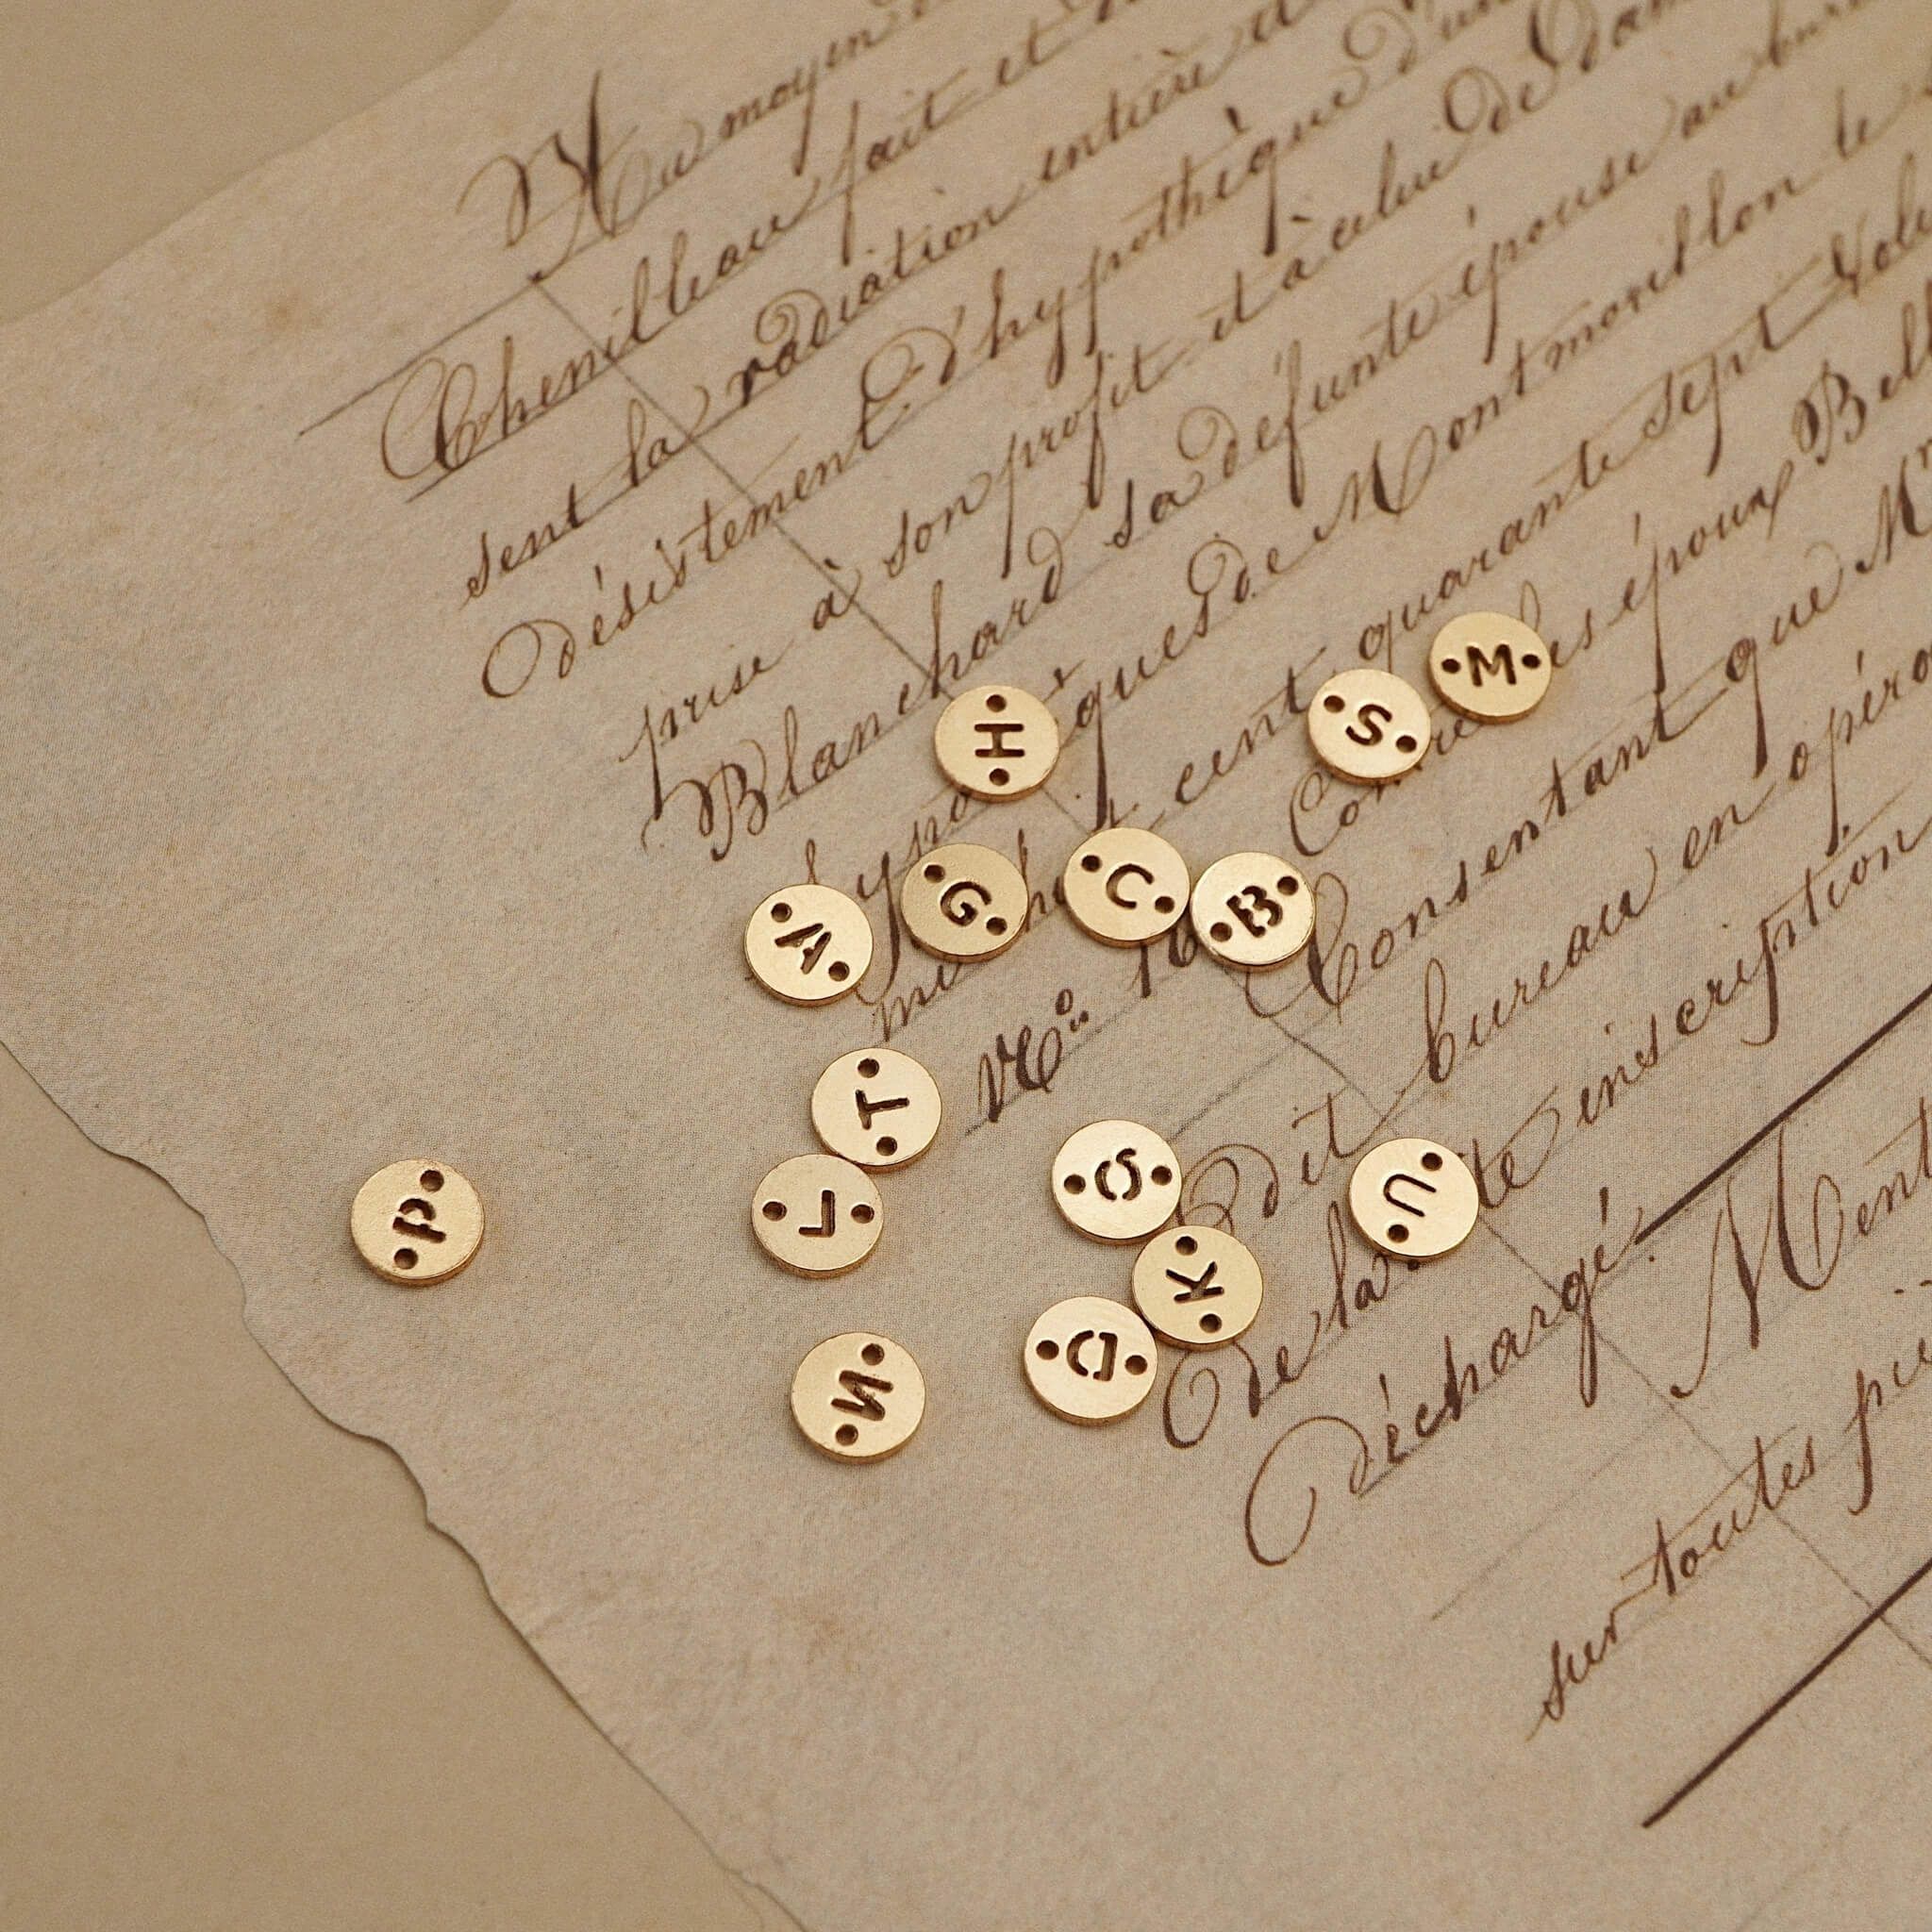 Au moyen
Chenilleau fait et
sent la radiation entière et
Désistement d'hypothèque
prise à son profit et à celui de Dam
Blanchard sa défunte épouse au bure
ques de Montmorillon le
cent quarante sept Vol
époux Bell
Consentant que M
Dit bureau en opéra
De la inscription
Déchargé. Ment
sur toutes piè
M
S
H
C
B
G
A
T
O
L
U
P
K
D
N